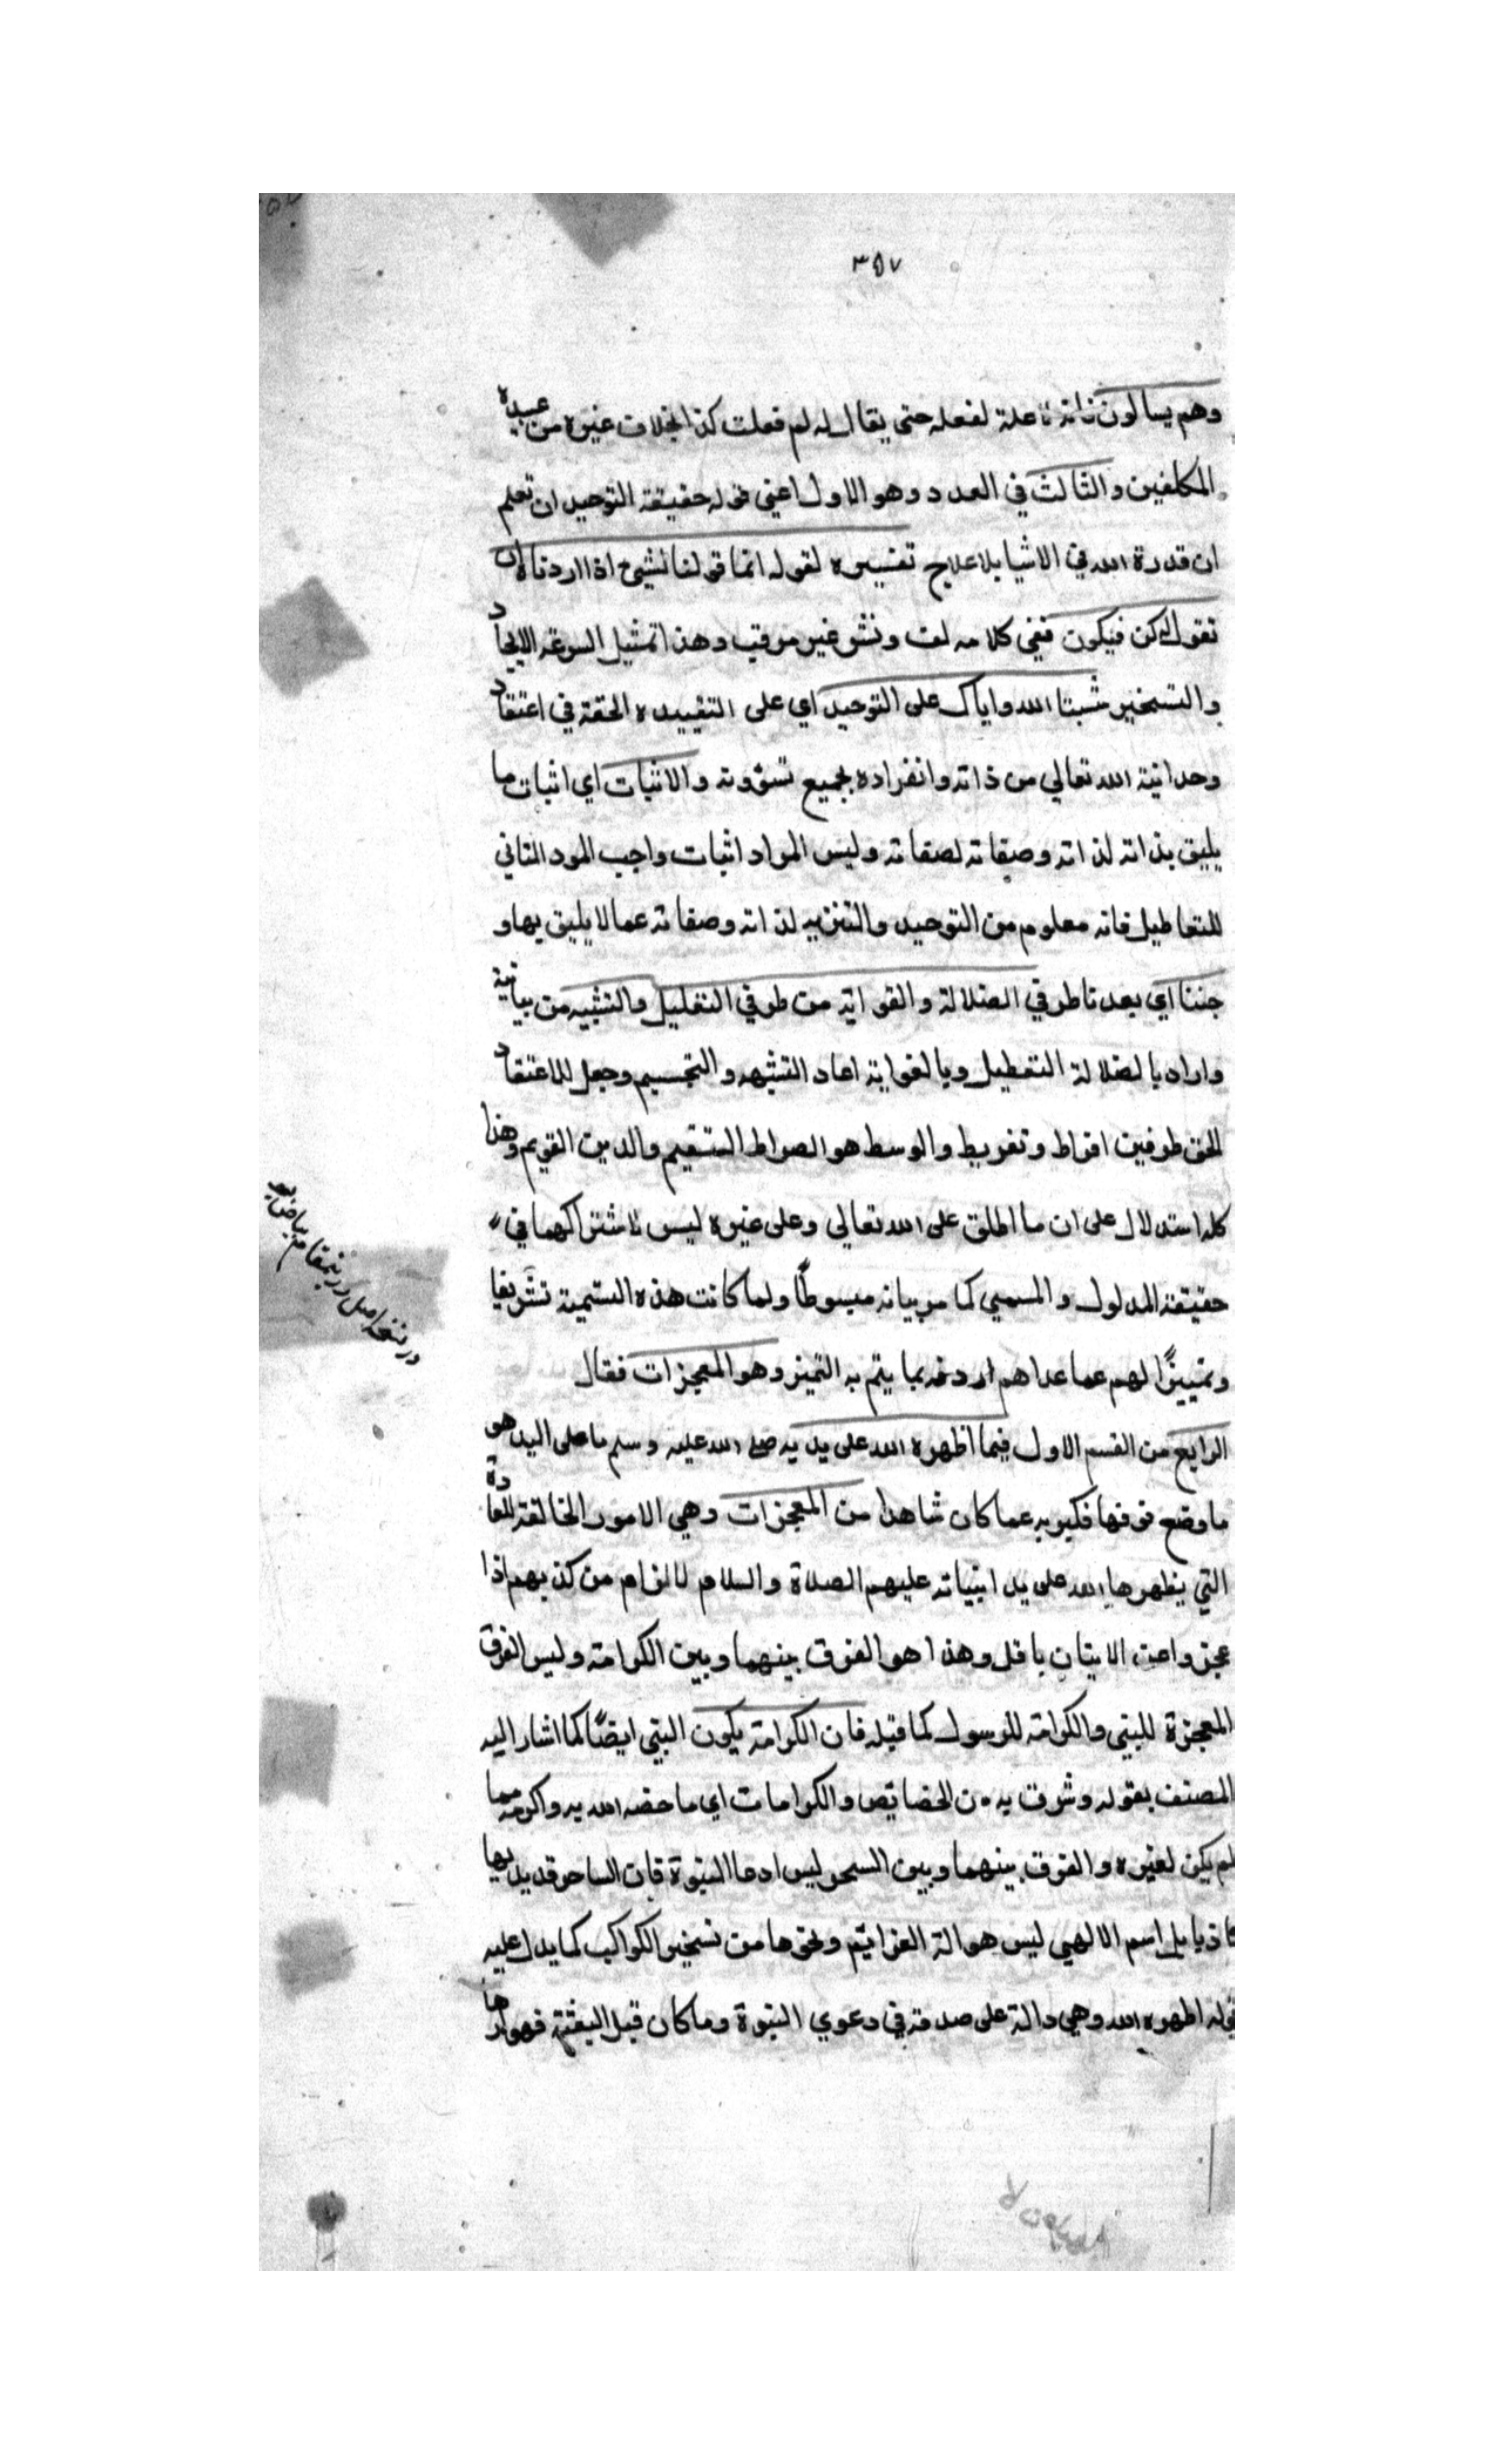 ٣٥٧
وهم يسالون فانه لا علة لفعله حتى يقال له لم فعلت كذا بخلاف غيره من عبيده
المكلفين والثالث في العدد وهو الاول اعني قوله حقيقة التوحيد ان تعلم
ان قدرة الله في الاشيا بلا علاج تفسيره لقوله انما قولنا لشيئ اذا اردناه ان
نقول له كن فيكون ففي كلامه لف ونشر غير مرتب وهذا تمثيل لسرعة الايجاد
والتسخير ثبتنا الله واياك على التوحيد اي على العقيدة الحقة في اعتقاد
وحدانية الله تعالي من ذاته وانفراده بجميع شؤونه والاثبات اي اثبات ما
يليق بذاته لذاته وصفاته لصفاته وليس المراد اثبات واجب
للتعاطيل فانه معلوم من التوحيد والتنزيه لذاته وصفاته عما لا يليق بها و
جنبنا اي بعدنا طرفي الضلالة والغواية من طرفي التعليل والتشبيه من بيانية
واراد بالضلالة التعطيل وبالغواية اعاد التشبيه والتجسيم وجعل للاعتقاد
الحق طرفين افراط وتفريط والوسط هو الصراط المستقيم والدين القويم وهذا
كله استدلال على ان ما اطلق على الله تعالي وعلى غيره ليس لاشتراكهما في
حقيقة المدلول والمسمي كما مر بيانه مبسوطًا ولما كانت هذه التسمية تشريفا
وتمييزًا لهم عما عداهم اردفه بما يتم به التميز وهو المعجزات فقال
الرابع من القسم الاول فيما اظهره الله على يديه صلى الله عليه وسلم ما على اليد هو
ما وضع فوقها فكني به عما كان شاهدا من المعجزات وهي الامور الخالفة للعادة
التي يظهرها الله على يد انبيائه عليهم الصلاة والسلام لالزام من كذبهم اذا
عجزوا عن الاتيان باقل وهذا هو الفرق بينهما وبين الكرامة وليس الفرق
المعجزة للنبي والكرامة للرسول كما قيل فان الكرامة يكون النبي ايضًا كما اشار اليه
المصنف بقوله وشرف به من الخصايص والكرامات اي ما خصه الله به واكرمه مما
لم يكن لغيره والفرق بينهما وبين السحر ليس ادعا النبوة فان الساحر قد يدعيها
كاذبا بل اسم الالهي ليس هو الة العزايم ونحوها من تسخير الكواكب كما يدل عليه
قوله اظهره الله وهي دالة على صدقه في دعوي النبوة وما كان قبل البعثة فهو ارها
در نسخه اصل در ينمقام بياض بود